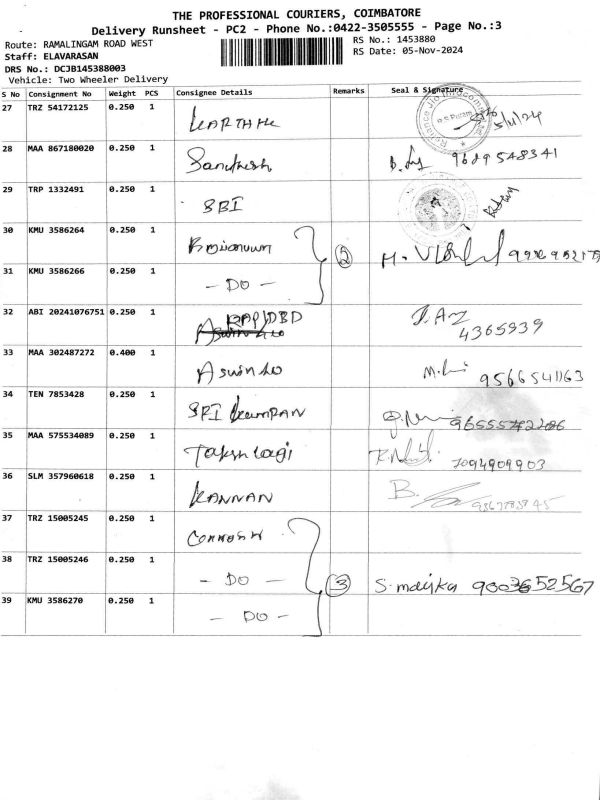 THE PROFESSIONAL COURIERS, COIMBATORE
Delivery Runsheet - PC2 - Phone No.:0422-3505555 - Page No.:3
Route: RAMALINGAM ROAD WEST
RS No.: 1453880
Staff: ELAVARASAN
RS Date: 05-Nov-2024
DRS No.: DCJB145388003
Vehicle: Two Wheeler Delivery
S No Consignment No Weight PCS Consignee Details Remarks Seal & Signature
27 TRZ 54172125 0.250 1 5/11/24
28 MAA 867180020 0.250 1 Sandhesh 9689548341
29 TRP 1332491 0.250 1 SBI
30 KMU 3586264 0.250 1 2
31 KMU 3586266 0.250 1 - DO -
32 ABI 20241076751 0.250 1 4365939
33 MAA 302487272 0.400 1 9566541163
34 TEN 7853428 0.250 1 SRI
35 MAA 575534089 0.250 1 7094909903
36 SLM 357960618 0.250 1 KANNAN B.
37 TRZ 15005245 0.250 1
38 TRZ 15005246 0.250 1 - DO - 3 9003652567
39 KMU 3586270 0.250 1 - DO -